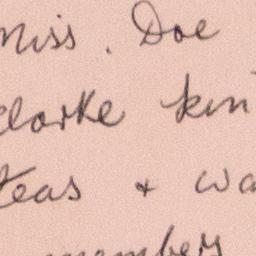 Miss. Doe
Clarke kin
teas + wa
members